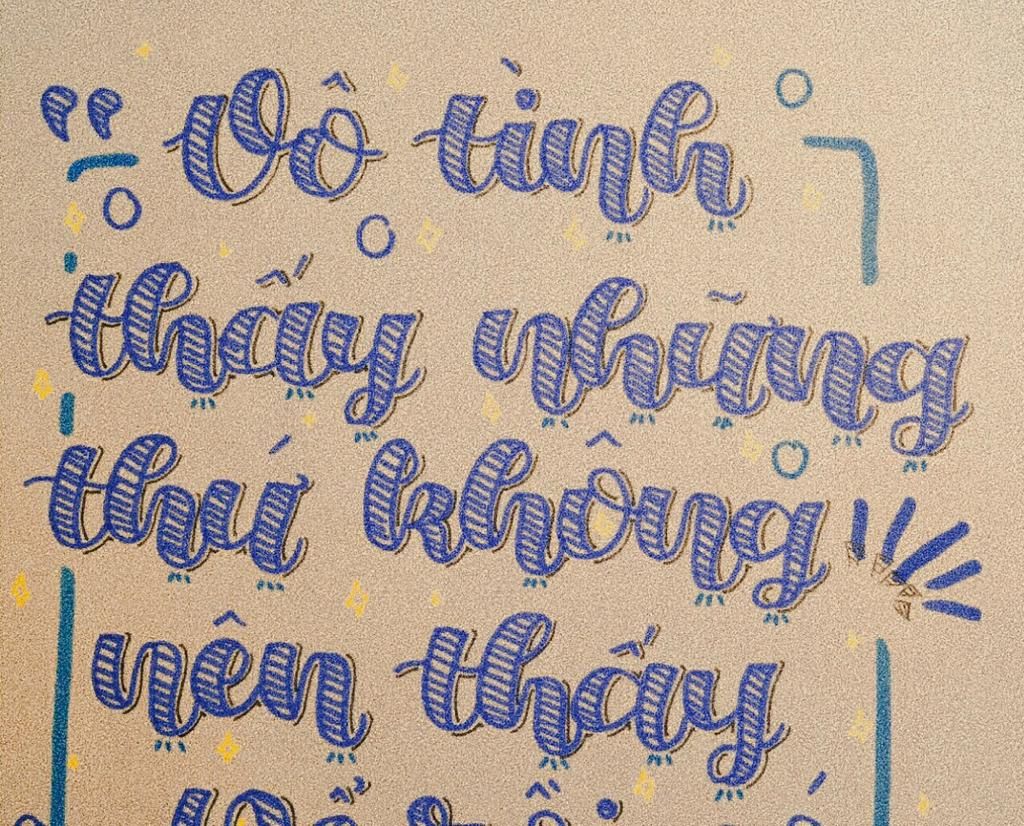 " Vô tình
thấy những
thứ không
nên thấy